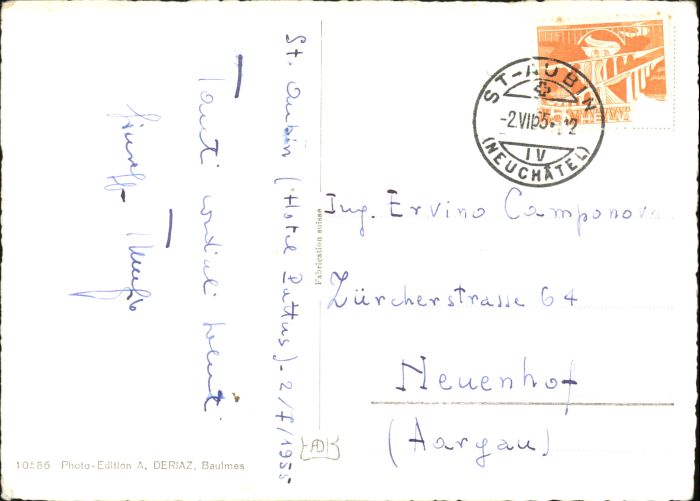 St. Aubin (Hotel Pattus) - 2/8/1955
Tanti cordiali saluti
Fabrication suisse
ST-AUBIN
-2.VIII.55 12
IV
(NEUCHÂTEL)
HELVETIA
Ing. Ervino Camponovo
Zürcherstrasse 64
Neuenhof
(Aargau)
AD
10586 Photo-Edition A. DERIAZ, Baulmes